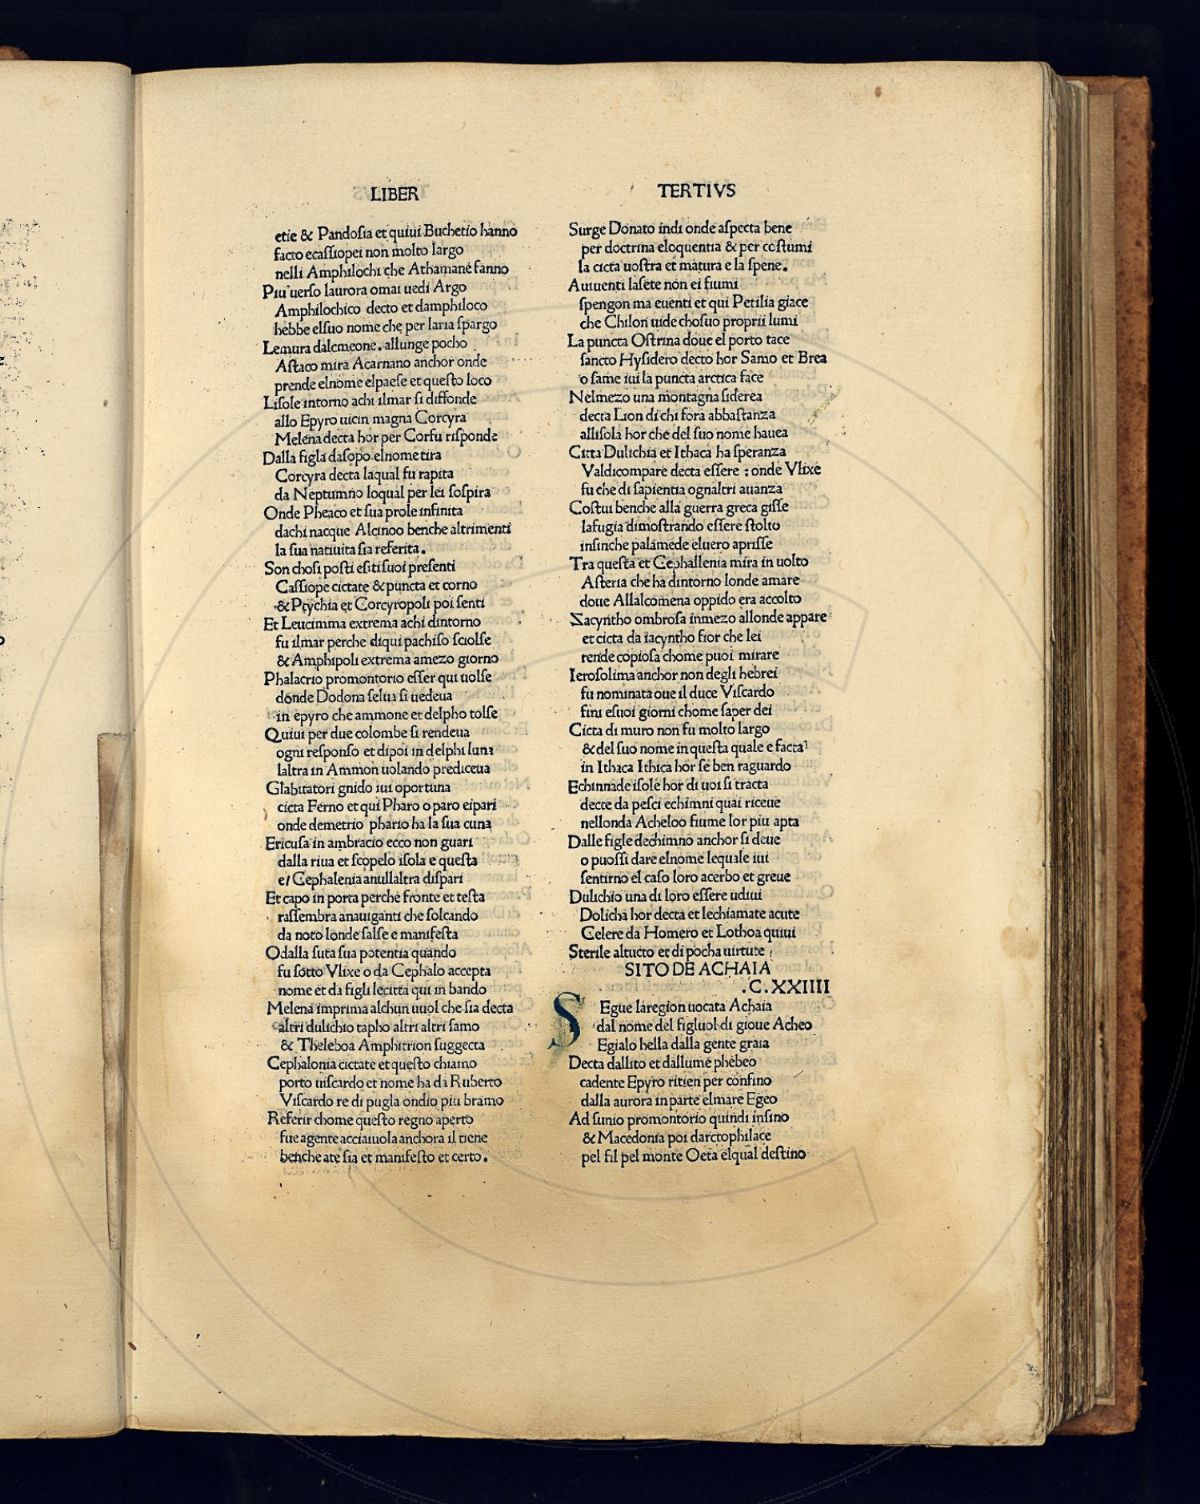 LIBER
etie & Pandoſia et quiui Buchetio hanno
facto ecaſſiopei non molto largo
nelli Amphilochi che Athamane fanno
Piu uerſo laurora omai uedi Argo
Amphilochico decto et damphiloco
hebbe elſuo nome che per laria ſpargo
Lemura dalcmeone. allunge pocho
Aſtaco mira Acarnano anchor onde
prende elnome elpaeſe et queſto loco
Liſole intorno achi ilmar ſi diffonde
allo Epyro uicin magna Corcyra
Melena decta hor per Corfu riſponde
Dalla figla daſopo elnome tira
Corcyra decta laqual fu rapita
da Neptumno loqual per lei ſoſpira
Onde Pheaco et ſua prole infinita
dachi nacque Alcinoo benche altrimenti
la ſua natiuita ſia referita.
Son choſi poſti eſiti ſuoi preſenti
Caſſiope cictate & puncta et corno
& Ptychia et Corcyropoli poi ſenti
Et Leucimma extrema achi dintorno
fu ilmar perche diqui pachiſo ſciolſe
& Amphipoli extrema amezo giorno
Phalacrio promontorio eſſer qui uolſe
donde Dodona ſelua ſi uedeua
in epyro che ammone et delpho tolſe
Quiui per due colombe ſi rendeua
ogni reſponſo et dipoi in delphi luna
laltra in Ammon uolando prediceua
Glabitatori gnido iui oportuna
cicta Ferno et qui Pharo o paro eipari
onde demetrio phario ha la ſua cuna
Ericuſa in ambracio ecco non guari
dalla riua et ſcopelo iſola e queſta
e/ Cephalenia anullaltra diſpari
Et capo in porta perche fronte et teſta
raſſembra anauiganti che ſolcando
da noto londe ſalſe e manifeſta
Odalla ſuta ſua potentia quando
fu ſotto Vlixe o da Cephalo accepta
nome et da figli lecitta qui in bando
Melena imprima alchun uuol che ſia decta
altri dulichio tapho altri altri ſamo
& Theleboa Amphitrion ſuggecta
Cephalonia cictate et queſto chiamo
porto uiſcardo et nome ha da Ruberto
Viſcardo re di pugla ondio piu bramo
Referir chome queſto regno aperto
fue agente acciaiuola anchora il tiene
benche ate ſia et manifeſto et certo.
TERTIVS
Surge Donato indi onde aſpecta bene
per doctrina eloquentia & per coſtumi
la cicta uoſtra et matura e la ſpene.
Auiuenti laſete non ei fiumi
ſpengon ma euenti et qui Petilia giace
che Chilon uide choſuo proprii lumi
La puncta Oſtrina doue el porto tace
ſancto Hyſidero decto hor Samo et Brea
o ſame iui la puncta arctica face
Nelmezo una montagna ſiderea
decta Lion di chi fora abbaſtanza
alliſola hor che del ſuo nome hauea
Citta Dulichia et Ithaca ha ſperanza
Valdicompare decta eſſere : onde Vlixe
fu che di ſapientia ognaltri auanza
Coſtui benche alla guerra greca giſſe
lafugia dimoſtrando eſſere ſtolto
inſinche palamede eluero apriſſe
Tra queſta et Cephallenia mira in uolto
Aſteria che ha dintorno londe amare
doue Allalcomena oppido era accolto
Zacyntho ombroſa inmezo allonde appare
et cicta da iacyntho fior che lei
rende copioſa chome puoi mirare
Ieroſolima anchor non degli hebrei
fu nominata oue il duce Viſcardo
fini eſuoi giorni chome ſaper dei
Cicta di muro non fu molto largo
& del ſuo nome in queſta quale e facta
in Ithaca Ithica hor ſe ben raguardo
Echinnade iſole hor di uoi ſi tracta
decte da peſci echimni quai riceue
nellonda Acheloo fiume lor piu apta
Dalle figle dechimno anchor ſi deue
o puoſſi dare elnome lequale iui
ſentirno el caſo loro acerbo et greue
Dulichio una di loro eſſere udiui
Dolicha hor decta et lechiamate acute
Celere da Homero et Lothoa quiui
Sterile altucto et di pocha uirtute
SITO DE ACHAIA
.C.XXIIII
Segue laregion uocata Achaia
dal nome del figluol di gioue Acheo
Egialo hella dalla gente graia
Decta dallito et dallume phebeo
cadente Epyro ritien per confino
dalla aurora in parte elmare Egeo
Ad ſunio promontorio quindi inſino
& Macedonia poi darctophilace
pel fil pel monte Oeta elqual deſtino